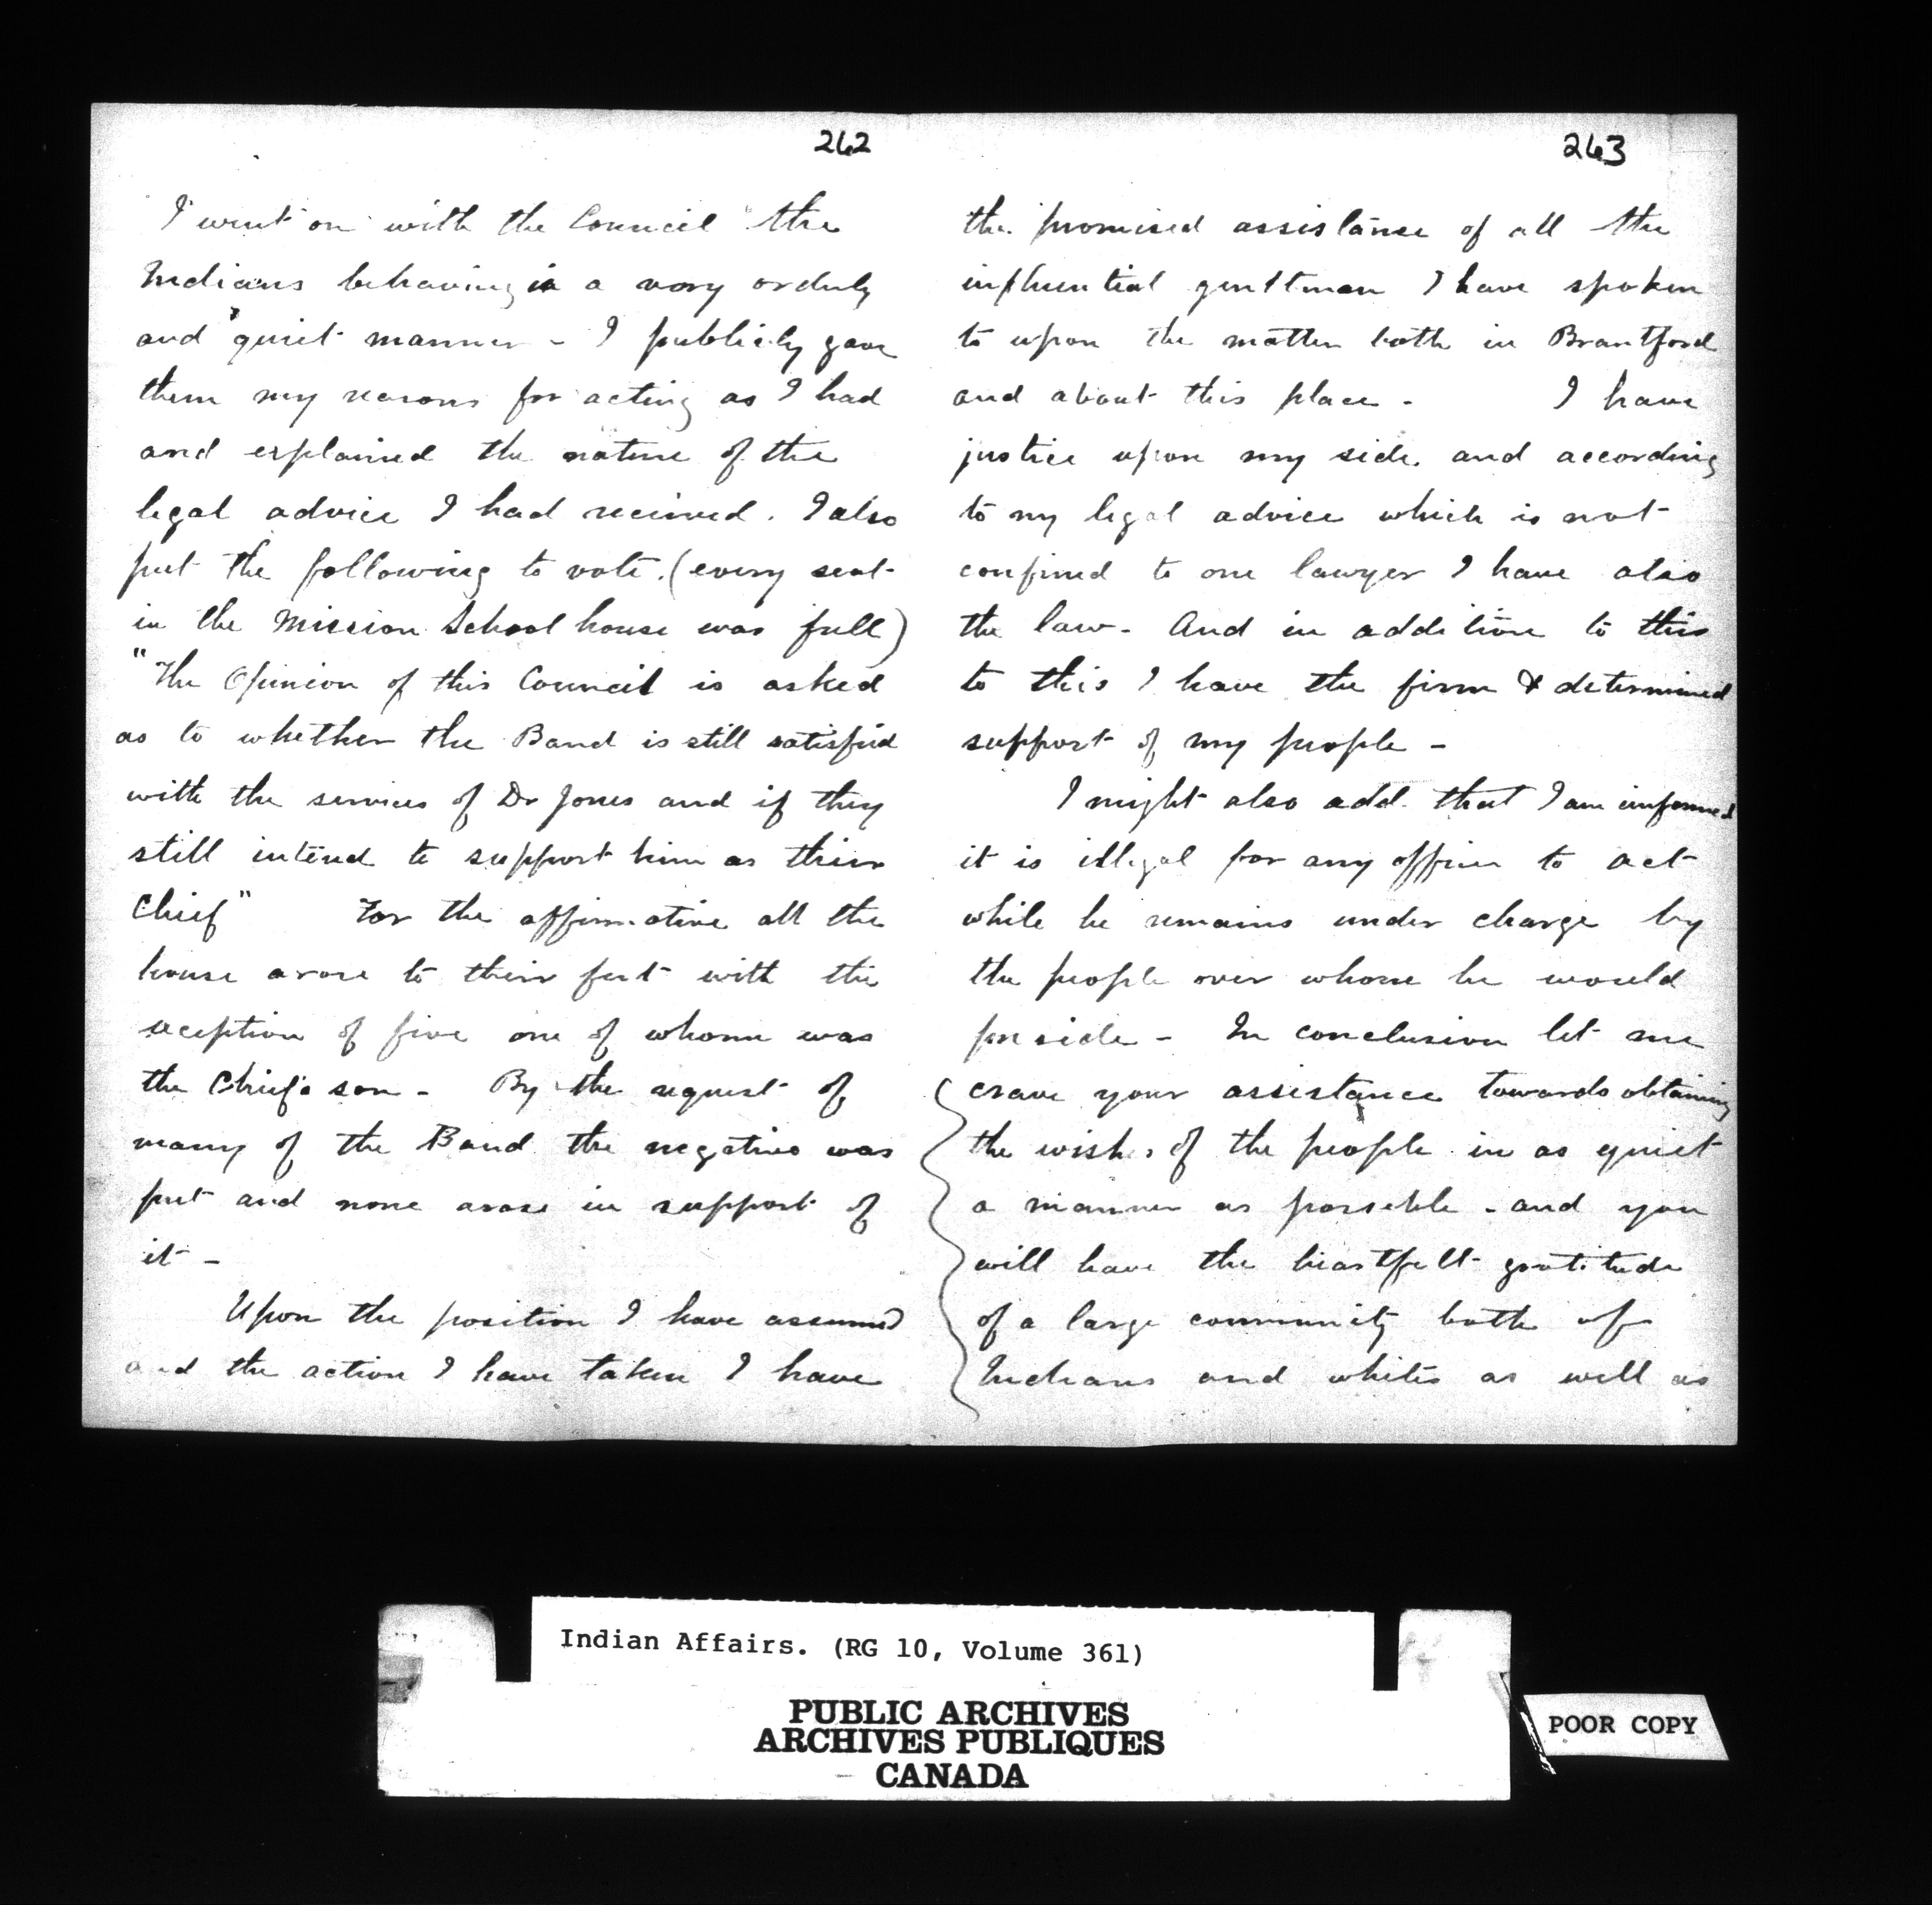 262
I went on with the Council the
Indians behaving in a very orderly
and quiet manner - I publicly gave
them my reasons for acting as I had
and explained the nature of the
legal advice I had received. I also
put the following to vote. (every seat
in the Mission School house was full)
"The Opinion of this Council is asked
as to whether the Band is still satisfied
with the services of Dr Jones and if they
still intend to support him as their
Chief" For the affirmative all the
house arose to their feet with the
exception of five one of whom was
the Chief's son - By the request of
many of the Band the negative was
put and none arose in support of
it -
Upon the position I have assumed
and the action I have taken I have
263
the promised assistance of all the
influential gentlemen I have spoken
to upon the matter both in Brantford
and about this place - I have
justice upon my side and according
to my legal advice which is not
confined to one lawyer I have also
the law - And in addition to this
to this I have the firm & determined
support of my people -
I might also add that I am informed
it is illegal for any officer to act
while he remains under charge by
the people over whom he would
preside - In conclusion let me
crave your assistance towards obtaining
the wishes of the people in as quiet
a manner as possible - and you
will have the heartfelt gratitude
of a large community both of
Indians and whites as well as
Indian Affairs. (RG 10, Volume 361)
PUBLIC ARCHIVES
ARCHIVES PUBLIQUES
CANADA
POOR COPY